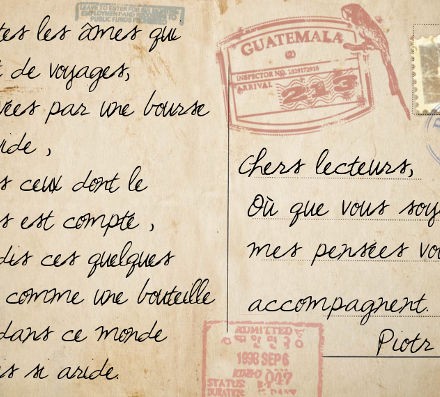 tes les âmes qui
de voyages,
par une bourse
ide,
s ceux dont le
s est compté,
dis ces quelques
comme une bouteille
dans ce monde
s si aride.
GUATEMALA
INSPECTOR NO.
ARRIVAL
213
Chers lecteurs,
Où que vous soy
mes pensées vo
accompagnent.
Piotr
ADMITTED
1998 SEP 6
STATUS